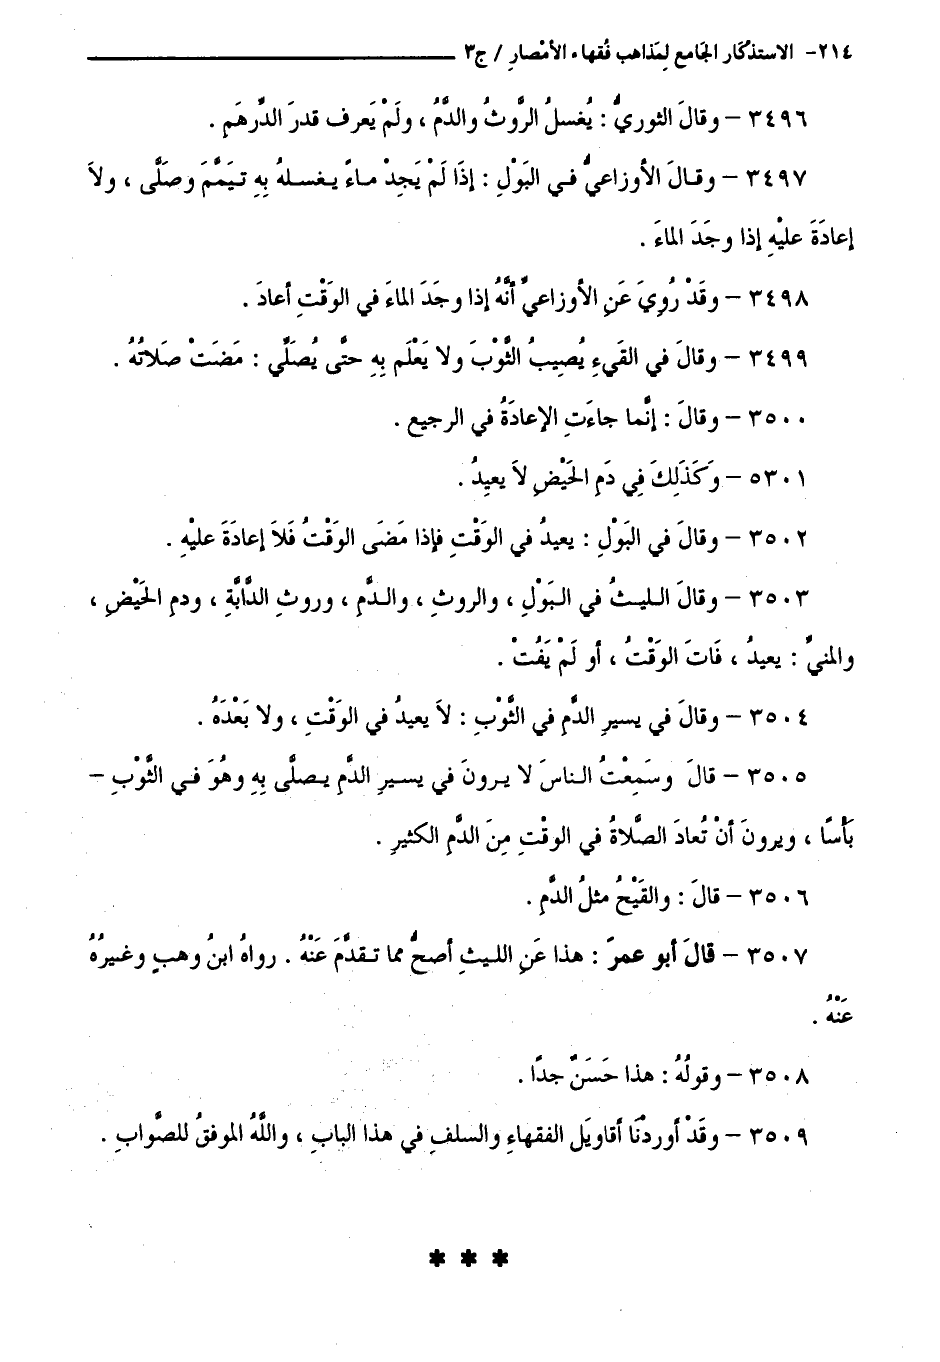 ٢١٤- الاستذكار الجامع لِمَذاهب فُقهاء الأمْصارِ / ج٣
٣٤٩٦ – وقالَ الثوريُّ : يُغسلُ الرَّوثُ والدَّمُ ، ولَمْ يَعرف قدرَ الدِّرهَمِ .
٣٤٩٧ – وقالَ الأوزاعيُّ في البَوْلِ : إذَا لَمْ يَجِدْ ماءً يغسلهُ بِهِ تيَمَّمَ وصَلَّى ، ولاَ
إعادَةَ عليْهِ إذا وجَدَ الماءَ .
٣٤٩٨ – وقَدْ رُوِيَ عَنِ الأوزاعيِّ أنَّهُ إذا وجَدَ الماءَ في الوَقْتِ أعادَ .
٣٤٩٩ – وقالَ في القَيءِ يُصِيبُ الثَّوْبَ ولا يَعْلَم بِهِ حتَّى يُصَلَّي : مَضَتْ صَلاتُهُ .
٣٥٠٠ – وقالَ : إنَّما جاءَتِ الإعادَةُ في الرجيع .
٥٣٠١ – وَكَذَلِكَ فِي دَمِ الحَيْضِ لاَ يعيدُ .
٣٥٠٢ – وقالَ في البَوْلِ : يعيدُ في الوَقْتِ فإذا مَضَى الوَقْتُ فَلاَ إعادَةَ عليْهِ .
٣٥٠٣ – وقالَ الليثُ في البَوْلِ ، والروثِ ، والدَّمِ ، وروثِ الدَّابَّةِ ، ودمِ الحَيْضِ ،
والمنيِّ : يعيدُ ، فَاتَ الوَقْتُ ، أو لَمْ يَفُتْ .
٣٥٠٤ – وقالَ في يسيرِ الدَّمِ في الثَّوْبِ : لاَ يعيدُ في الوَقْتِ ، ولا بَعْدَهُ .
٣٥٠٥ – قالَ وسَمِعْتُ الناسَ لا يرونَ في يسيرِ الدَّمِ يصلَّى بِهِ وهُوَ في الثَّوْبِ –
بَأْسًا ، ويرونَ أنْ تُعادَ الصَّلاةُ في الوقْتِ مِنَ الدَّمِ الكثيرِ .
٣٥٠٦ – قالَ : والقَيْحُ مثلُ الدَّمِ .
٣٥٠٧ – قالَ أبو عمرَ : هذا عَنِ الليثِ أصحُّ مما تقدَّمَ عَنْهُ . رواهُ ابنُ وهبٍ وغيرُهُ
عَنْهُ .
٣٥٠٨ – وقولُهُ : هذا حَسَنٌ جدًا .
٣٥٠٩ – وقَدْ أوردْنَا أقاويَل الفقهاءِ والسلفِ في هذا البابِ ، واللَّهُ الموفقُ للصَّوابِ .
* * *